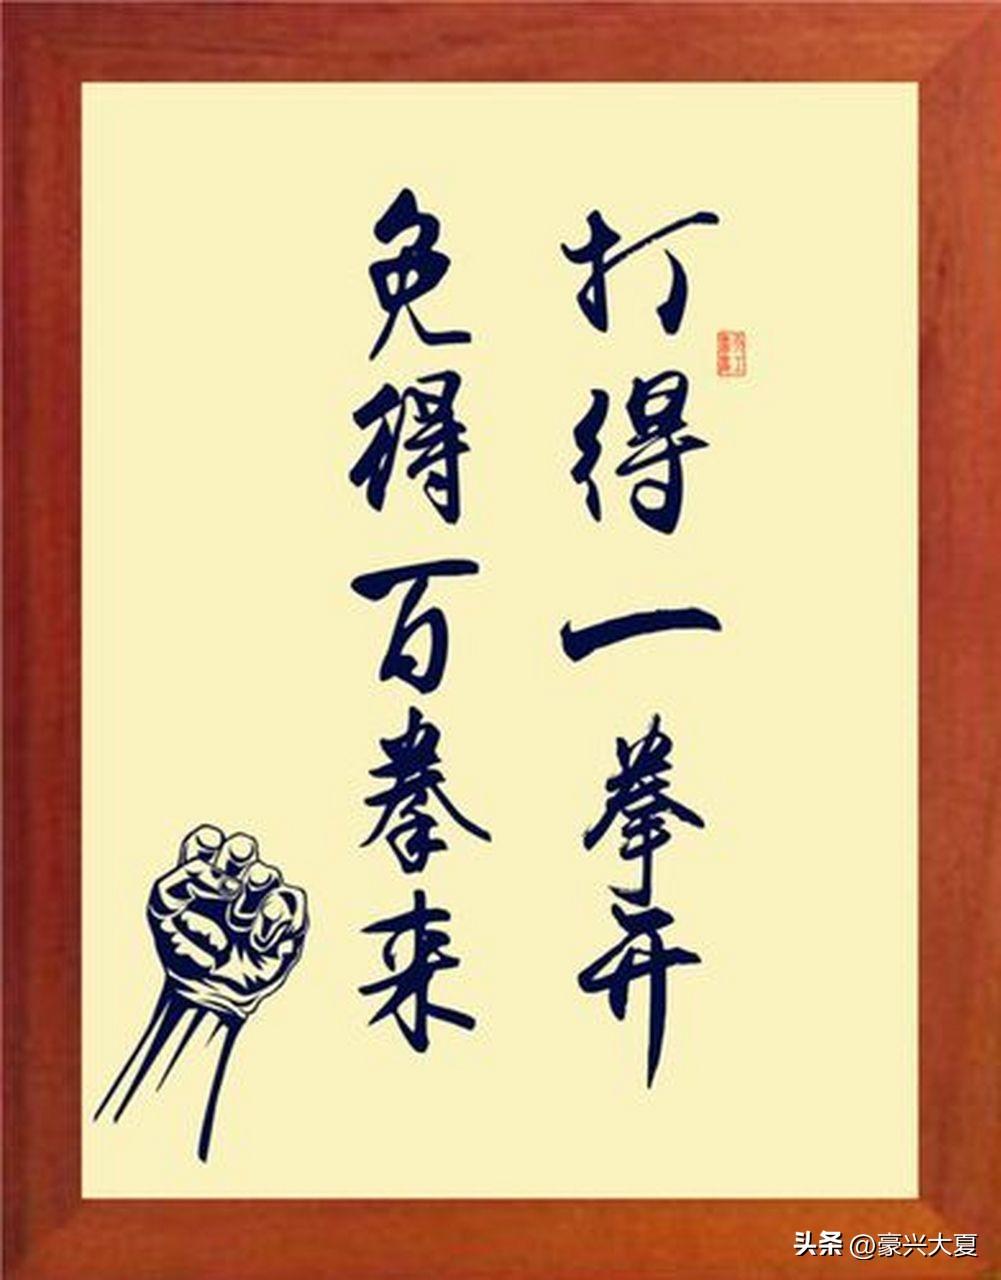 打得一拳开
免得百拳来
头条 @豪兴大夏